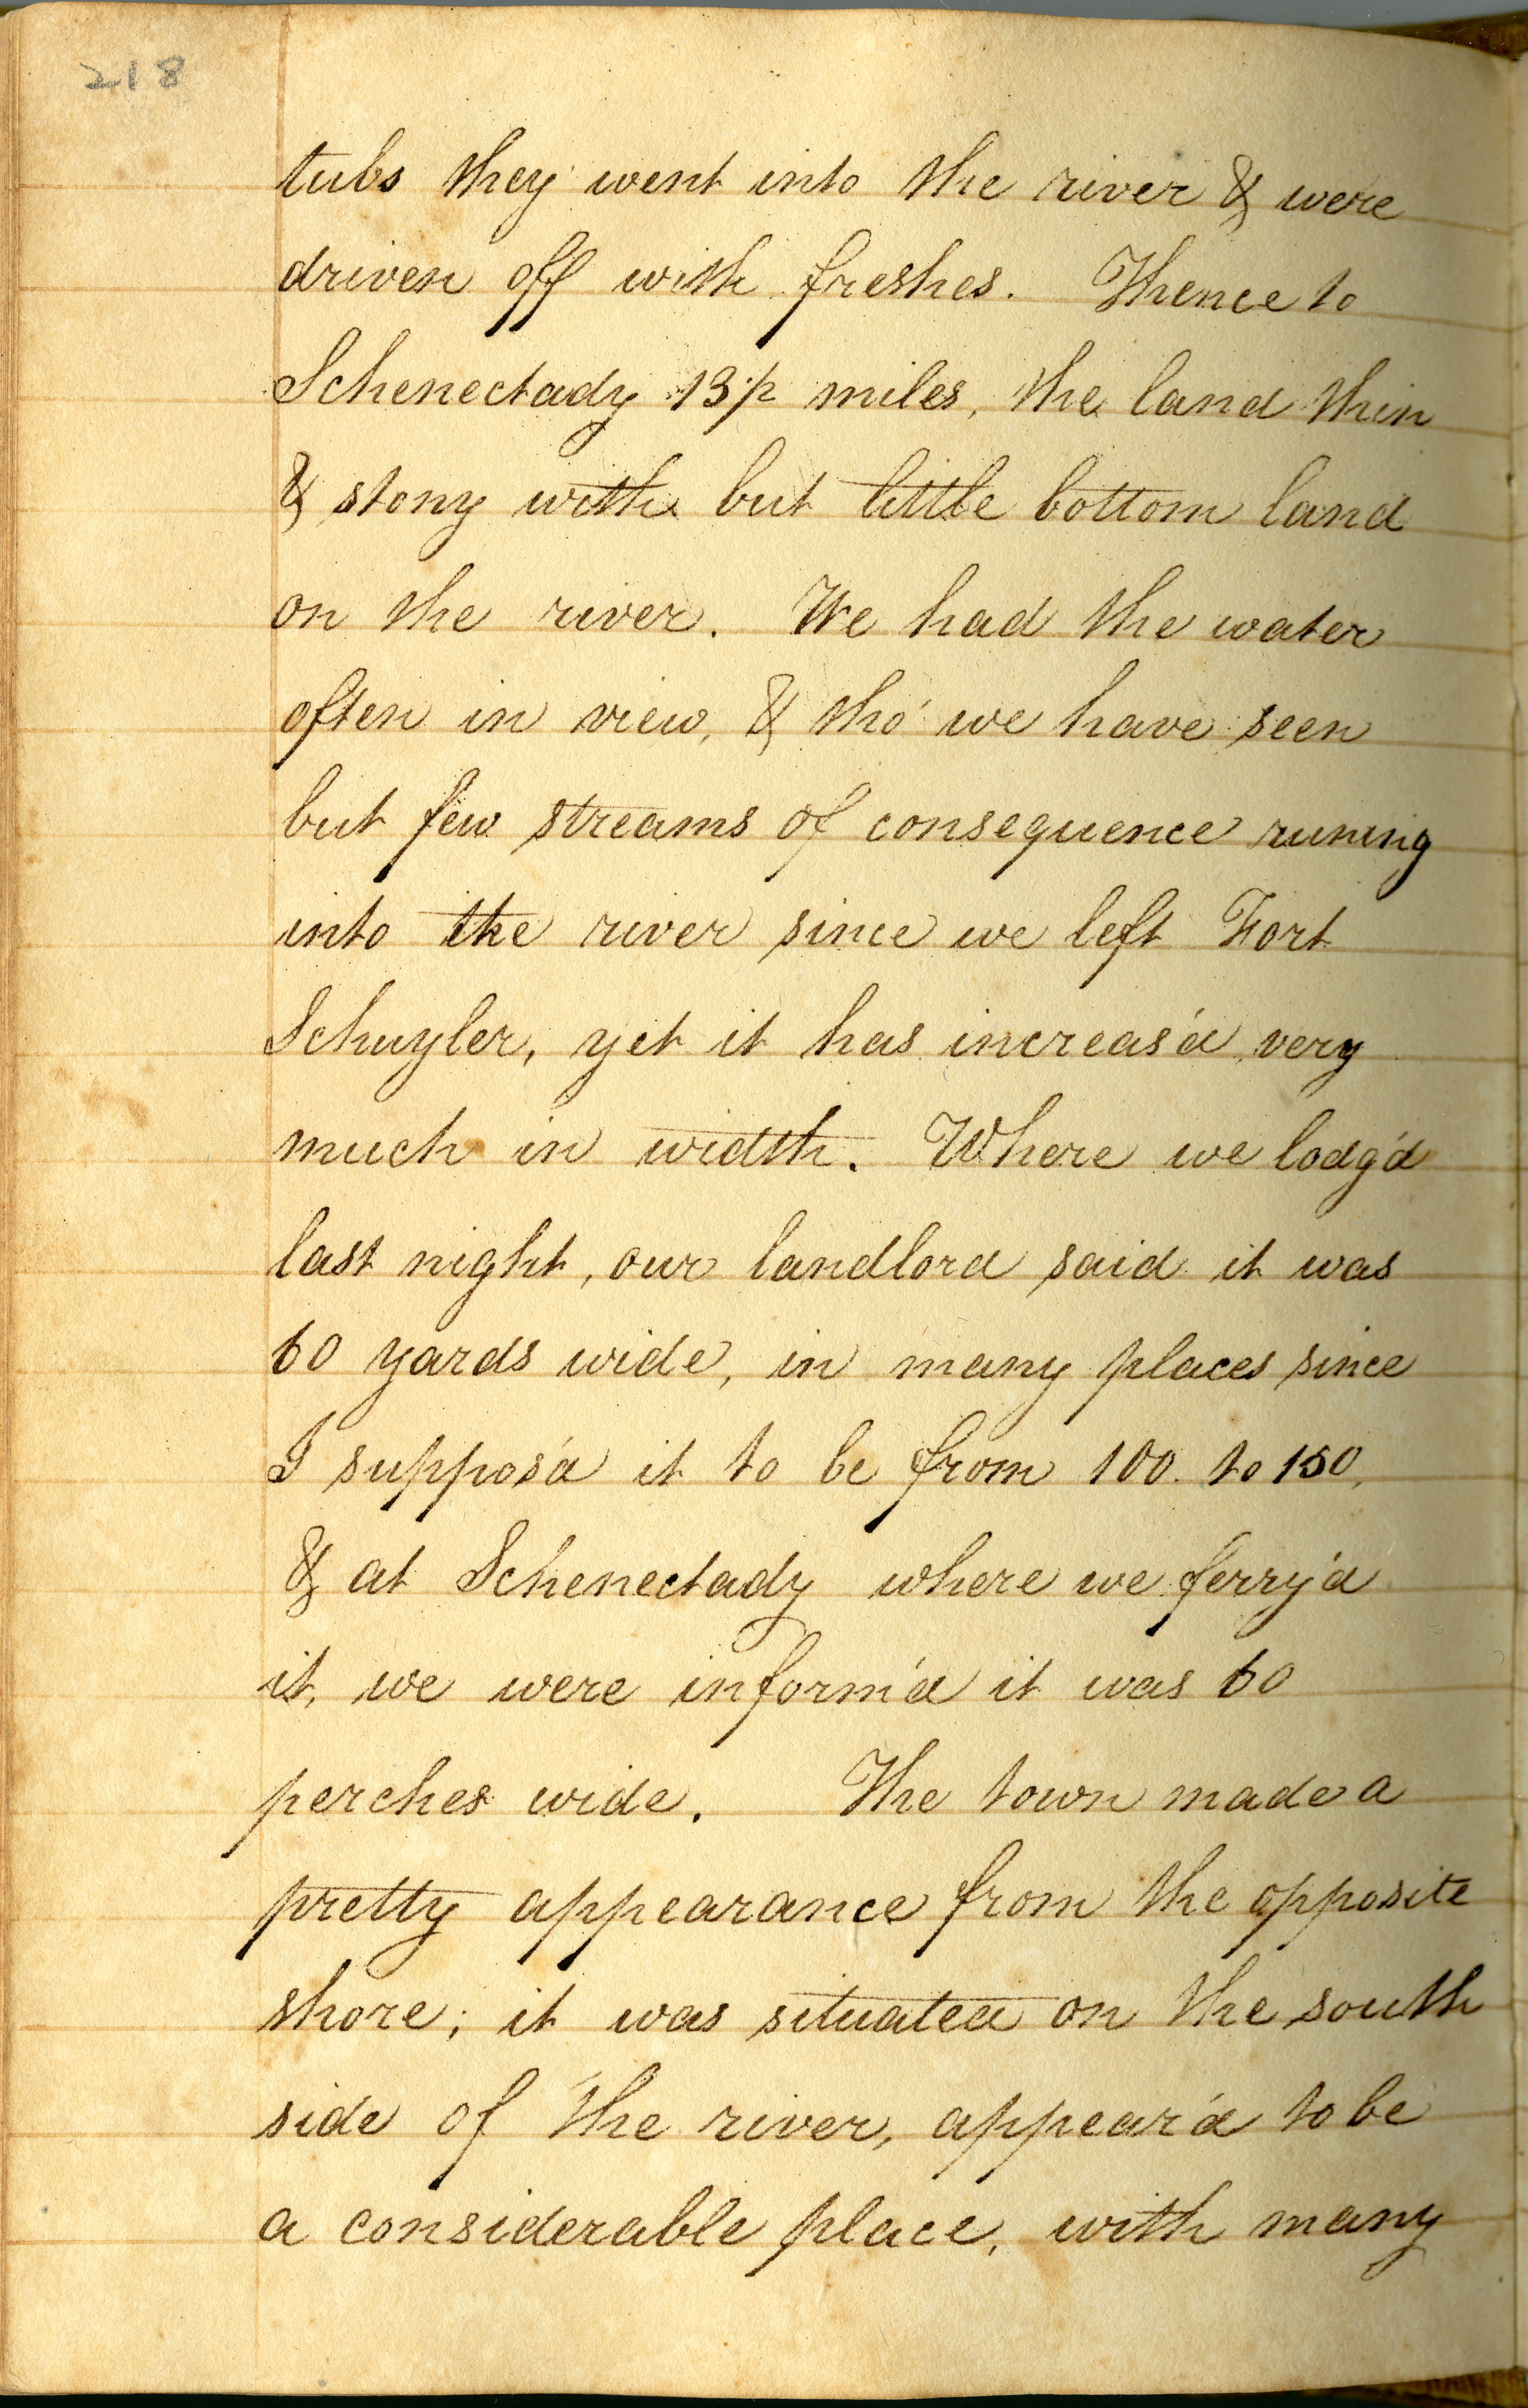 218
tubs they went into the river & were
driven off with freshes. Thence to
Schenectady 13½ miles, the land thin
& stony with but little bottom land
on the river. We had the water
often in view, & tho' we have seen
but few streams of consequence runing
into the river since we left Fort
Schuyler, yet it has increas'd very
much in width. Where we lodg'd
last night, our landlord said it was
60 yards wide, in many places since
I suppos'd it to be from 100 to 150,
& at Schenectady where we ferry'd
it, we were inform'd it was 60
perches wide. The town made a
pretty appearance from the opposite
shore; it was situated on the south
side of the river, appear'd to be
a considerable place, with many